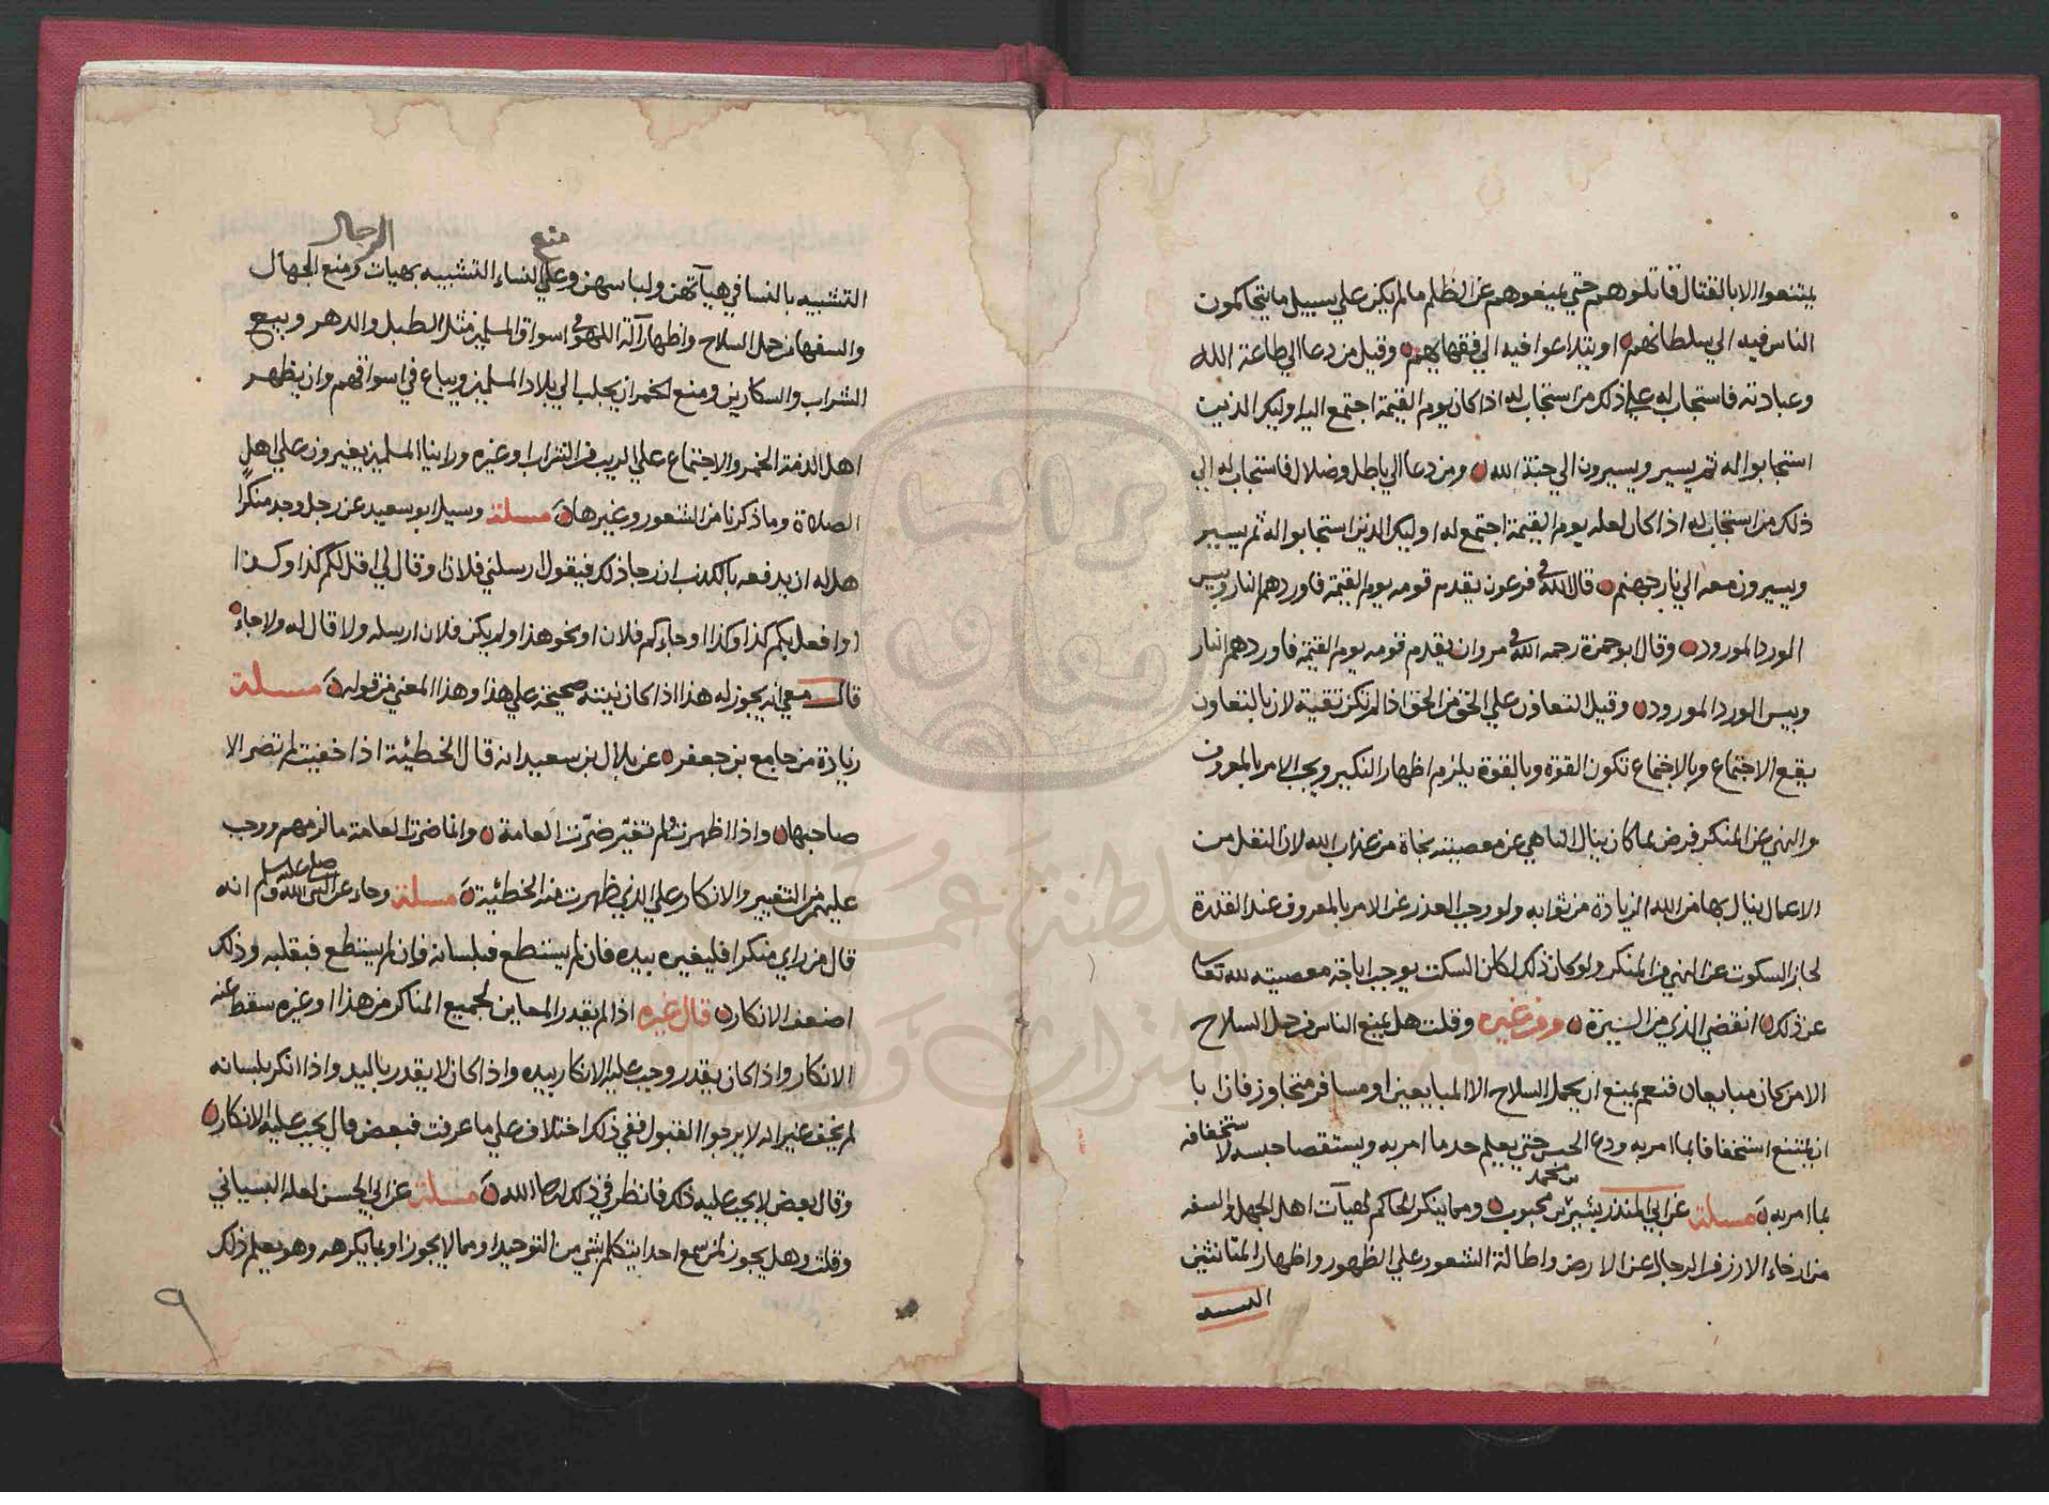 يمتنعوا الا بالقتال قاتلوهم حتي يمنعوهم عن الظلم ما لم يكن علي سبيل ما يتحاكمون
الناس فيه الي سلطانهم او يتداعوا فيه الي فقهايهم وقيل من دعا الي طاعة الله
وعبادته فاستجاب له علي ذلك من استجاب له اذا كان يوم القيمة اجتمع اليه اوليك الذين
استجابوا له ثم يسير ويسيرون الي جنة الله ومن دعا الي باطل وضلال فاستجاب له الي
ذلك من استجاب له اذا كان لعله يوم القيمة اجتمع له اوليك الذين استجابوا له ثم يسير
ويسيرون معه الي نار جهنم قال الله في فرعون يقدم قومه يوم القيمة فاوردهم النار وبيس
الورد المورود وقال ابو حمزة رحمه الله في مروان يقدم قومه يوم القيمة فاوردهم النار
وبيس الورد المورود وقيل التعاون علي الحق من الحق اذا لم تكن تقية لان بالتعاون
يقع الاجتماع وبالاجتماع تكون القوة وبالقوة يلزم اظهار النكير ويجب الامر بالمعروف
والنهي عن المنكر فرض لما كان ينال الناهي عن معصيته نجاة من عذاب الله لان النفل من
الاعمال ينال بها من الله الزيادة من ثوابه ولو وجب العذر عن الامر بالمعروف عند القدرة
لجاز السكوت عن النهي من المنكر ولو كان ذلك لكان السكت يوجب اباحة معصيته لله تعالي
عن ذلك انقضي الذي من السيرة ومن غيره وقلت هل يمنع الناس من حمل السلاح
الا من كان مبايعا فنعم يمنع ان يحمل السلاح الا المبايعين او مسافر متجاوز فان ابا
ان يمتنع استخفافا بما امر به ودع الحبس حتي يعلم حد ما امر به ويستقصا حبسه لاستخفافه
بما امر به مسلة عن ابي المنذر بشير بن محمد بن محبوب ومما ينكر الحاكم لهيآت اهل الجهل والسفه
من ارخاء الازر من الرجال عن الارض واطالة الشعور علي الظهور واظهار المتانثين
التشبيه
منع الرجال
التشبيه بالنسا في هيآتهن ولباسهن وعلي النساء التشبيه بهيات ومنع الجهال
والسفها من حمل السلاح واظهار آلة اللهو في اسواق المسلمين مثل الطبل والدهر وبيع
الشراب والسكارين ومنع الخمر ان يجلب الي بلاد المسلمين ويباع في اسواقهم وان يظهر
اهل الذمة الخمر والاجتماع علي الريب من الشراب وغيره وراينا المسلمين يغيرون علي اهل
الصلاة وما ذكرنا من الشعور وغيرها مسلة وسيل ابو سعيد عن رجل وجد منكرا
هل له ان يدفعه بالكذب ان رجا ذلك فيقول ارسلني فلان او قال لي اقل لكم كذا وكذا
او افعل بكم كذا وكذا او جاءكم فلان او نحو هذا ولم يكن فلان ارسله ولا قال له ولا جاء
قال معي انه يجوز له هذا اذا كان نيته صحيحة علي هذا وهذا المعني من قوله مسلة
زيادة من جامع بن جعفر عن بلال بن سعيد انه قال الخطيئة اذا خفيت لم تضر الا
صاحبها واذا اظهرت ولم تغير ضرت العامة وانما ضرت العامة ما لزمهم ووجب
عليهم من التغيير والانكار علي الذي ظهرت منه الخطيئة مسلة وجاء عن النبي صلي الله عليه وسلم انه
قال من راي منكرا فليغيره بيده فان لم يستطع فبلسانه وان لم يستطع فبقلبه وذلك
اضعف الانكار قال غيره اذا لم يقدر المعاين لجميع المناكر من هذا او غيره سقط عنه
الانكار واذا كان يقدر وجب عليه الانكار بيده واذا كان لا يقدر باليد واذا انكر بلسانه
لم يخف غير انه لا يرجوا القبول ففي ذلك اختلاف علي ما عرفت فبعض قال يجب عليه الانكار
وقال بعض لا يجب عليه ذلك فانظر في ذلك ان شا الله مسلة عن ابي الحسن لعله البسياني
وقلت وهل يجوز لمن سمع احدا يتكلم بشي من التوحيد او مما لا يجوز او بما يكرهه وهو يعلم ذلك
٩